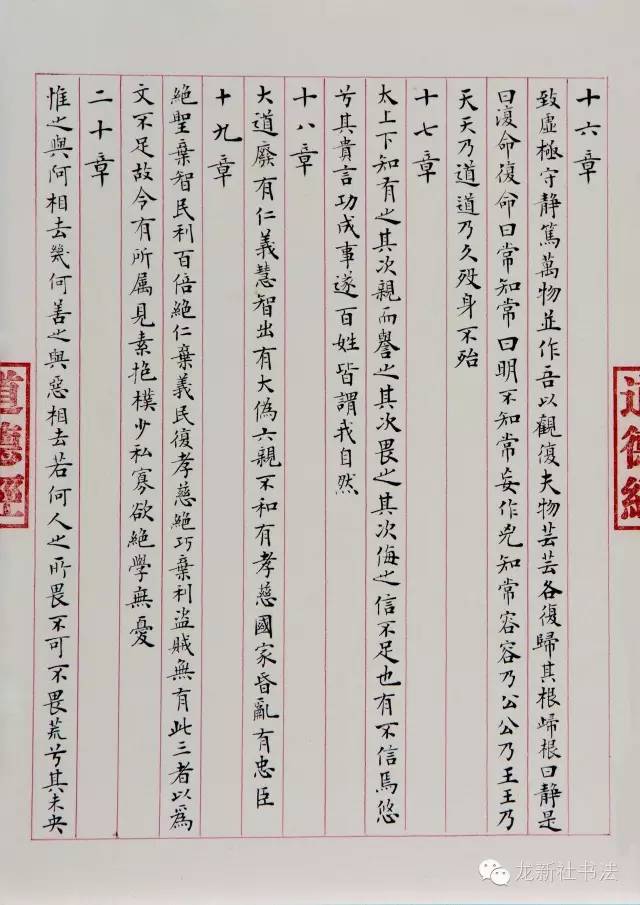 十六章
致虛極守靜篤萬物並作吾以觀復夫物芸芸各復歸其根歸根曰靜是
曰復命復命曰常知常曰明不知常妄作兇知常容容乃公公乃王王乃
天天乃道道乃久歿身不殆
十七章
太上下知有之其次親而譽之其次畏之其次侮之信不足也有不信焉悠
兮其貴言功成事遂百姓皆謂我自然
十八章
大道廢有仁義慧智出有大偽六親不和有孝慈國家昏亂有忠臣
十九章
絕聖棄智民利百倍絕仁棄義民復孝慈絕巧棄利盜賊無有此三者以為
文不足故令有所屬見素抱樸少私寡欲絕學無憂
二十章
惟之與阿相去幾何善之與惡相去若何人之所畏不可不畏荒兮其未央
道德經
道德經
龙新社书法